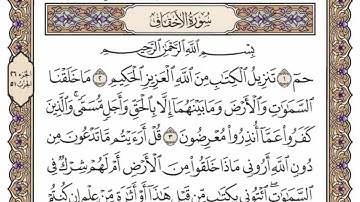 سُورَةُ الأَحْقَافِ
بِسْمِ اللَّهِ الرَّحْمَٰنِ الرَّحِيمِ
حمٓ ١ تَنزِيلُ الْكِتَٰبِ مِنَ اللَّهِ الْعَزِيزِ الْحَكِيمِ ٢ مَا خَلَقْنَا
السَّمَٰوَٰتِ وَالْأَرْضَ وَمَا بَيْنَهُمَا إِلَّا بِالْحَقِّ وَأَجَلٍ مُّسَمًّى ۚ وَالَّذِينَ
كَفَرُوا عَمَّا أُنذِرُوا مُعْرِضُونَ ٣ قُلْ أَرَءَيْتُم مَّا تَدْعُونَ مِن
دُونِ اللَّهِ أَرُونِي مَاذَا خَلَقُوا مِنَ الْأَرْضِ أَمْ لَهُمْ شِرْكٌ فِي
السَّمَٰوَٰتِ ۖ ائْتُونِي بِكِتَٰبٍ مِّن قَبْلِ هَٰذَا أَوْ أَثَٰرَةٍ مِّنْ عِلْمٍ إِن كُنتُمْ
الجزء ٢٦
الحزب ٥١